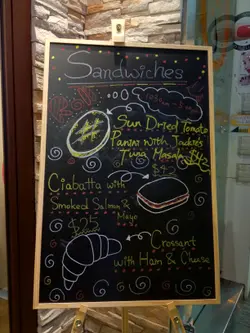 Sandwiches
Sun Dried Tomato
Panini with
Tuna Masala
$42
Ciabatta with
Smoked Salmon &
Mayo
$25
Crossant
with Ham & Cheese